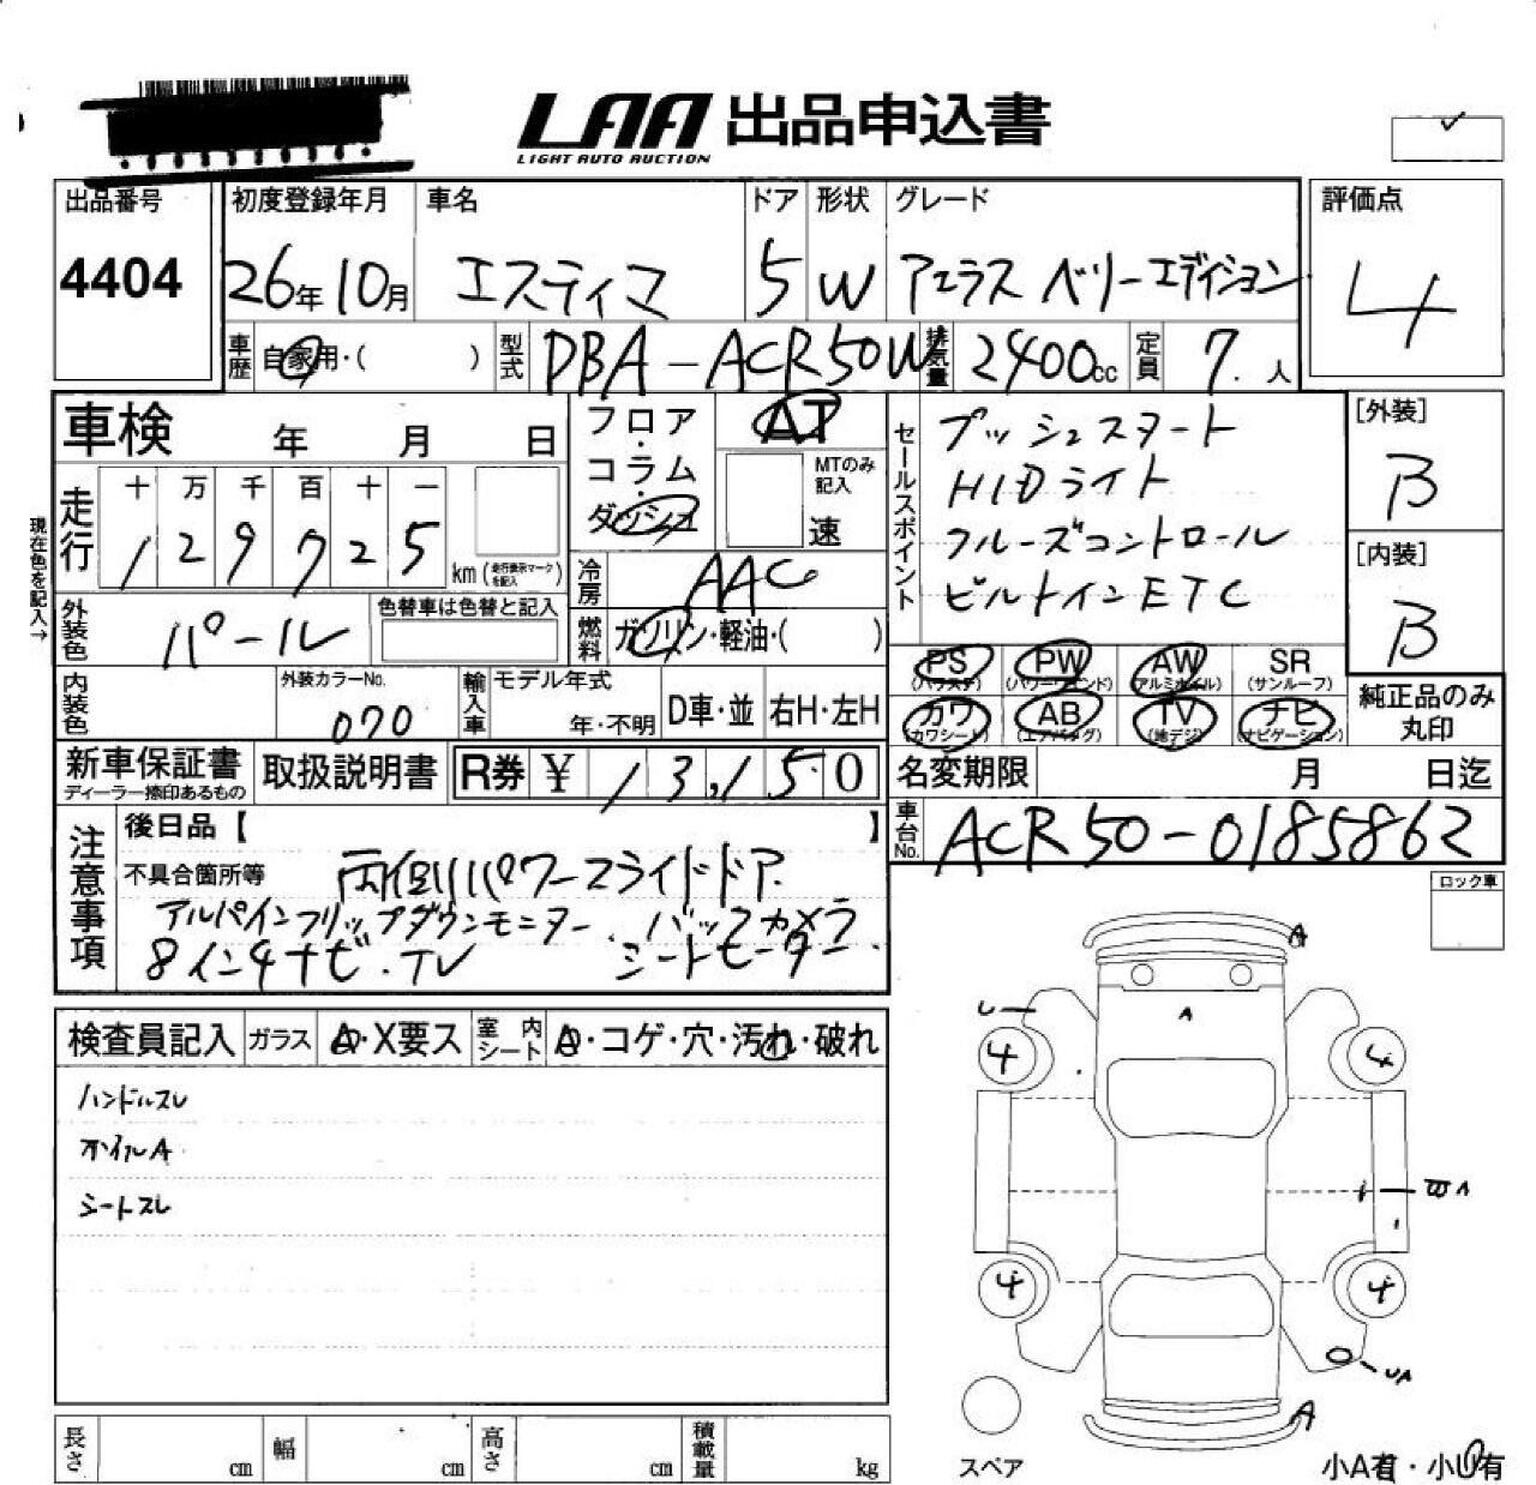 LAA 出品申込書
LIGHT AUTO AUCTION
出品番号 初度登録年月 車名 ドア 形状 グレード 評価点
4404 26年10月 エスティマ 5 W アエラス ベリーエディション 4
車歴 自家用・( ) 型式 DBA-ACR50W 排気量 2400cc 定員 7.人
車検 年 月 日
フロア・コラム・ダッシュ AT
MTのみ記入 速
セールスポイント
プッシュスタート
HIDライト
クルーズコントロール
ビルトインETC
[外装]
B
[内装]
B
現在色を記入→
走行 十 万 千 百 十 一
129725 km(走行表示マークを記入)
冷房 AAC
外装色 パール 色替車は色替と記入
燃料 ガソリン・軽油・( )
PS PW AW SR
(パワステ) (パワーウィンド) (アルミホイル) (サンルーフ)
カワ AB TV ナビ
(カワシート) (エアバッグ) (地デジ) (ナビゲーション)
純正品のみ丸印
内装色 外装カラーNo. 070 輸入車 モデル年式 年・不明 D車・並 右H・左H
新車保証書 取扱説明書 R券 ¥ 13,150
ディーラー捺印あるもの
名変期限 月 日迄
車台No. ACR50-0185862
注意事項
後日品【 】
不具合箇所等 両側パワースライドドア.
アルパインフリップダウンモニター. バックカメラ
8インチナビ.TV シートモーター.
ロック車
検査員記入 ガラス A・X要ス 室内シート A・コゲ・穴・汚れ・破れ
ハンドルスレ
ホイルA
シートスレ
A
A
U
4 4
4 4
A
スペア
小A有・小U有
長さ cm 幅 cm 高さ cm 積載量 kg